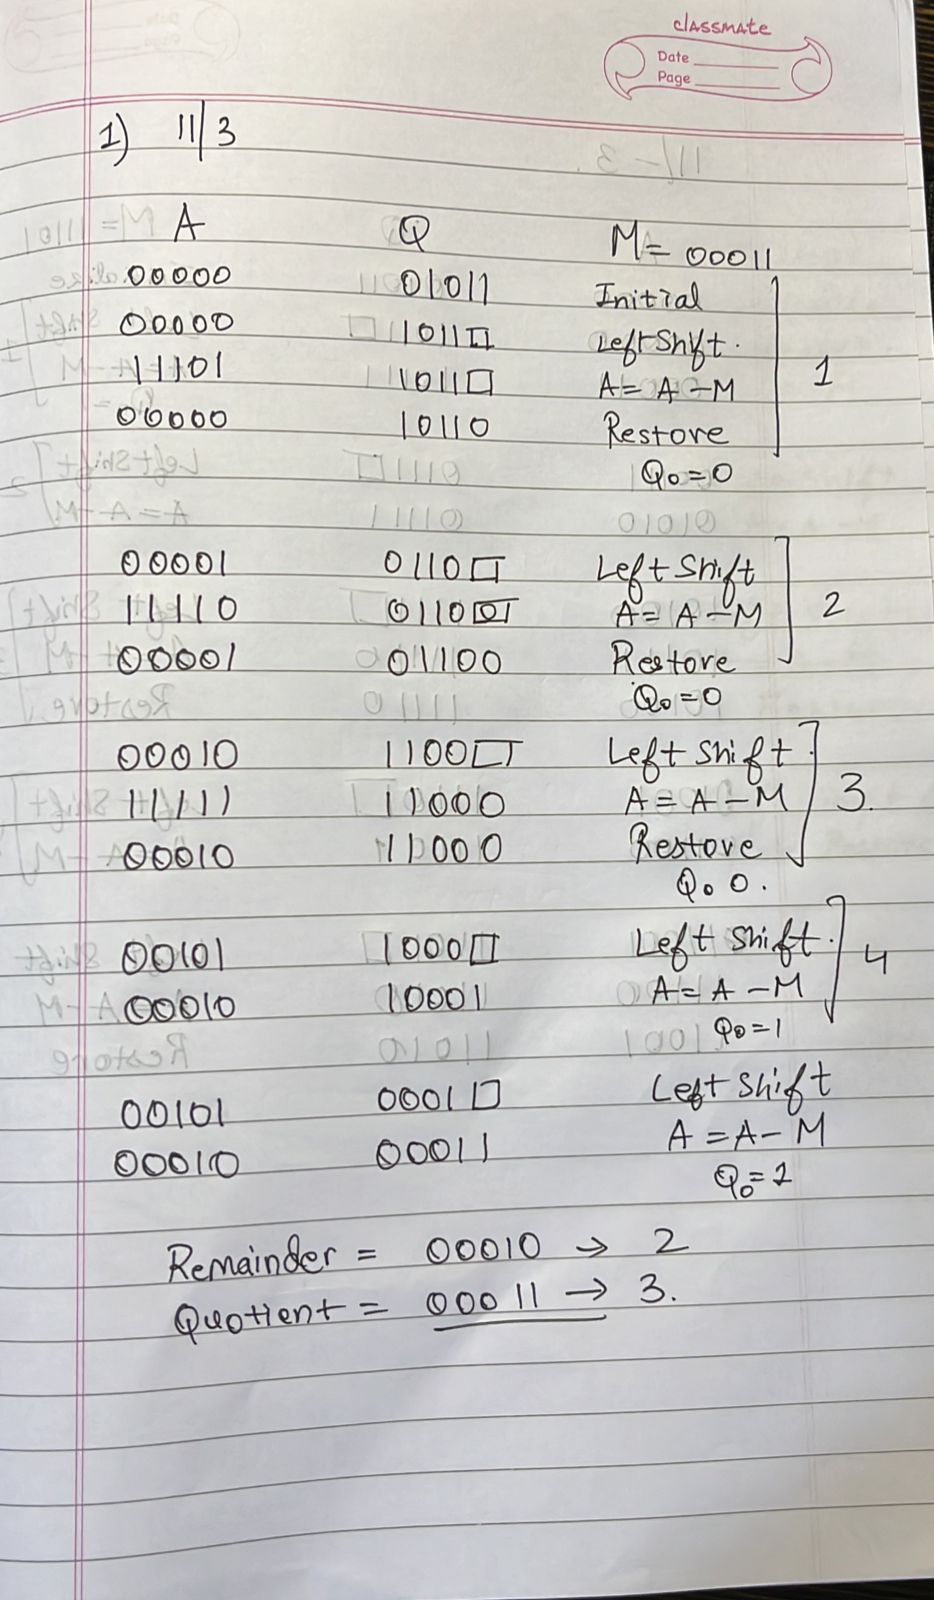 classmate
Date
Page
1) 11/3
A Q M= 00011
00000 01011 Initial
00000 1011□ Left Shift.
11101 1011□ A= A-M
00000 10110 Restore
Q0=0
1
00001 0110□ Left Shift
11110 01100 A= A-M
00001 01100 Restore
Q0=0
2
00010 1100□ Left Shift
11111 11000 A= A-M
00010 11000 Restore
Q0 0.
3.
00101 1000□ Left Shift.
00010 10001 A= A-M
Q0=1
4
00101 0001□ Left Shift
00010 00011 A=A-M
Q0=1
Remainder = 00010 → 2
Quotient = 00011 → 3.